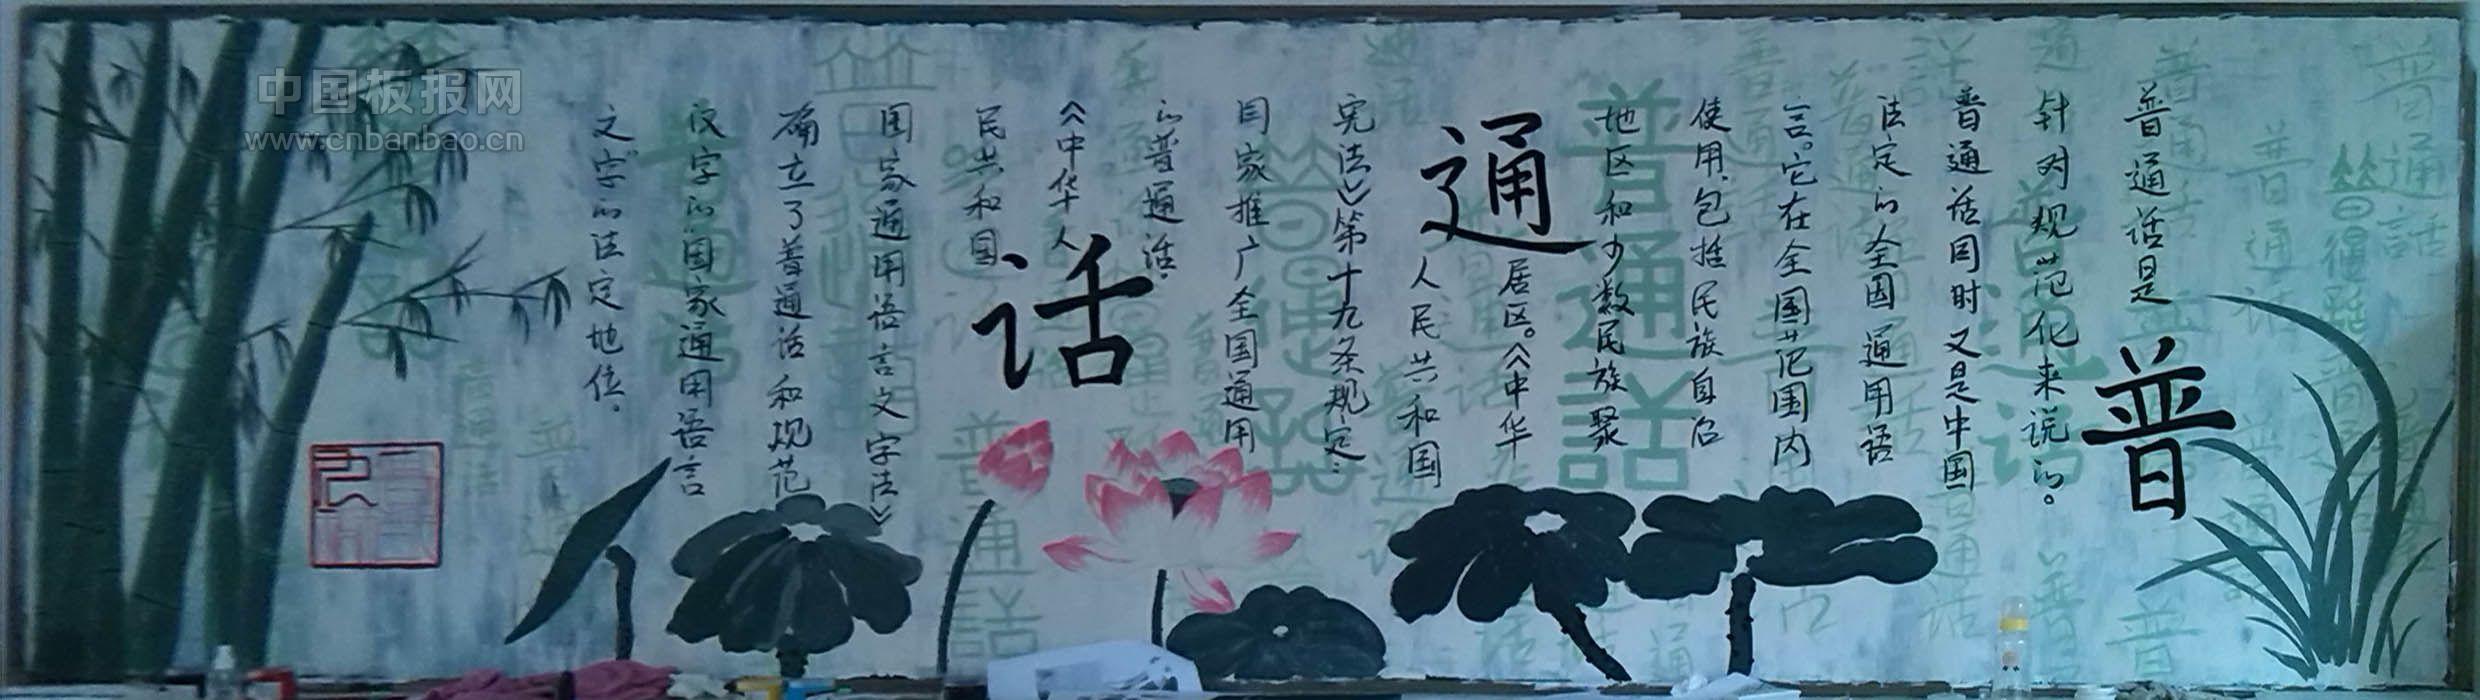 普通话
普通话是
针对规范化来说的。
普通话同时又是中国
法定的全国通用语
言。它在全国范围内
使用,包括民族自治
地区和少数民族聚
居区。《中华
人民共和国
宪法》第十九条规定:
国家推广全国通用
的普通话。
《中华人
民共和国
国家通用语言文字法》
确立了普通话和规范
汉字的“国家通用语言
文字”的法定地位。
普通話
普通话
普通話
中国板报网
www.cnbanbao.cn